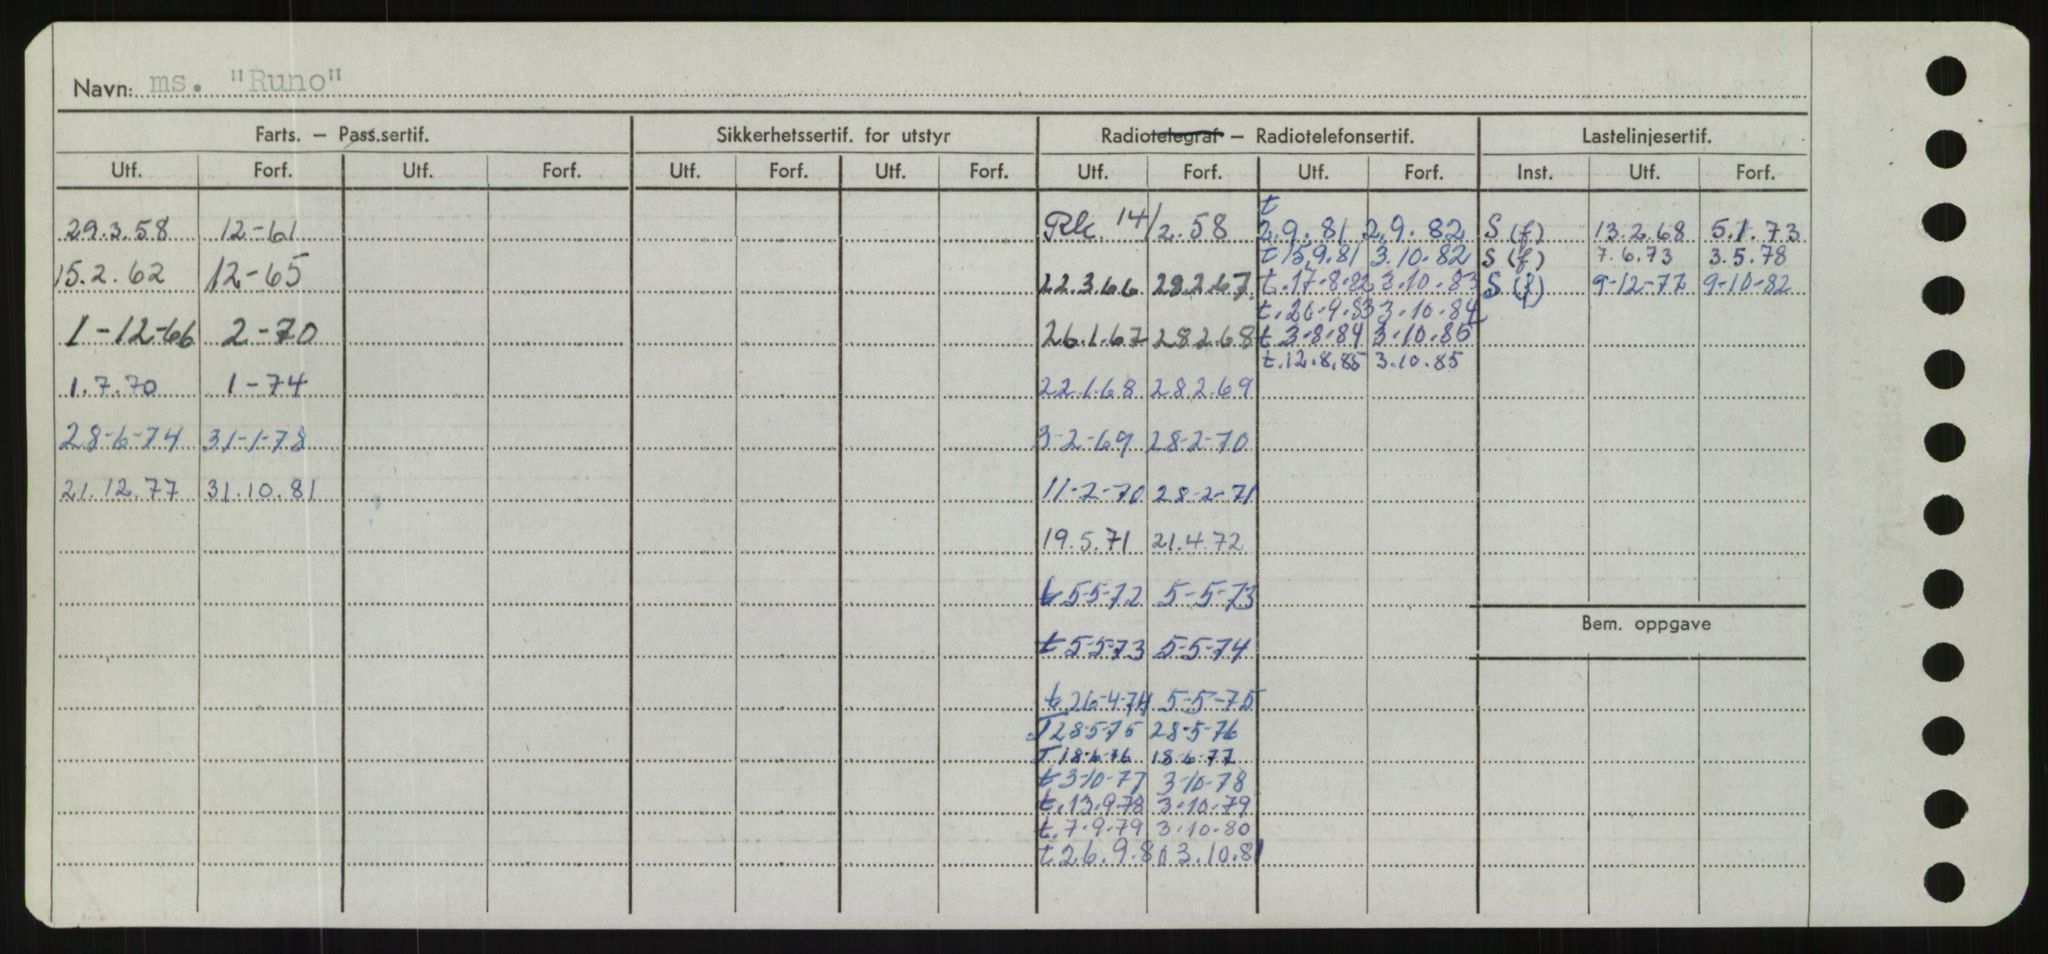 Navn: ms. "Runo"
Farts. — Pass.sertif. Sikkerhetssertif. for utstyr Radiotelegraf — Radiotelefonsertif. Lastelinjesertif.
Utf. Forf. Utf. Forf. Utf. Forf. Utf. Forf. Utf. Forf. Utf. Forf. Inst. Utf. Forf.
29.3.58 12-61
15.2.62 12-65
1-12-66 2-70
1.7.70 1-74
28-6-74 31-1-78
21.12.77 31.10.81
14/2.58
22.3.66 28.2.67
26.1.67 28.2.68
22.1.68 28.2.69
3-2-69 28-2-70
11-2-70 28-2-71
19.5.71 21.4.72
t 5-5-72 5-5-73
t 5-5-73 5-5-74
t 26-4-74 5-5-75
T 28-5-75 28-5-76
T 18-6-76 18-6-77
t 3-10-77 3-10-78
t. 13.9.78 3.10.79
t. 7.9.79 3.10.80
t 26.9.80 3.10.81
t
2.9.81 2.9.82
t 15.9.81 3.10.82
t. 17.8.82 3.10.83
t. 20.9.83 3.10.84
t 3.8.84 3.10.85
t. 12.8.85 3.10.85
S (f) 13.2.68 5.1.73
S (f) 7.6.73 3.5.78
S (f) 9-12-77 9-10-82
Bem. oppgave